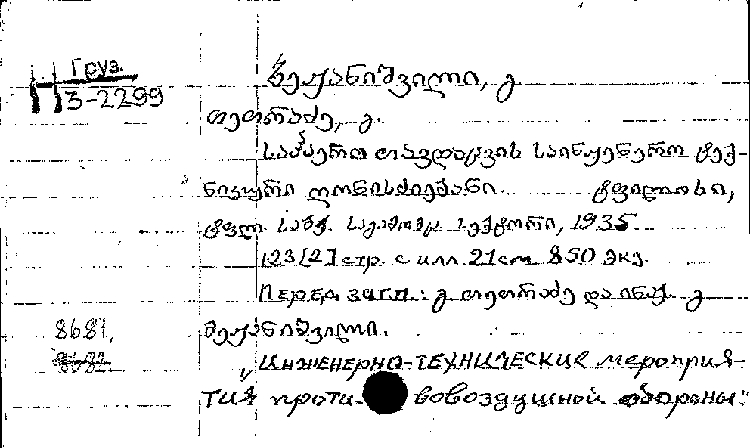 Груз.
П 3-2299
მექანიშვილი, გ.
თეთრაძე, გ.
საჰაერო თავდაცვის საინჟენერო ტექ-
ნიკური ღონისძიებანი. ტფილისი,
ტფილ. საბჭ. სექტორი, 1935.
123[2] стр. с илл. 21 cm. 850 ეკზ.
Перед загл.: გ. თეთრაძე და ინჟ. გ.
8681, მექანიშვილი.
„Инженерно-технические мероприя-
тия проти вовоздушной обороны: